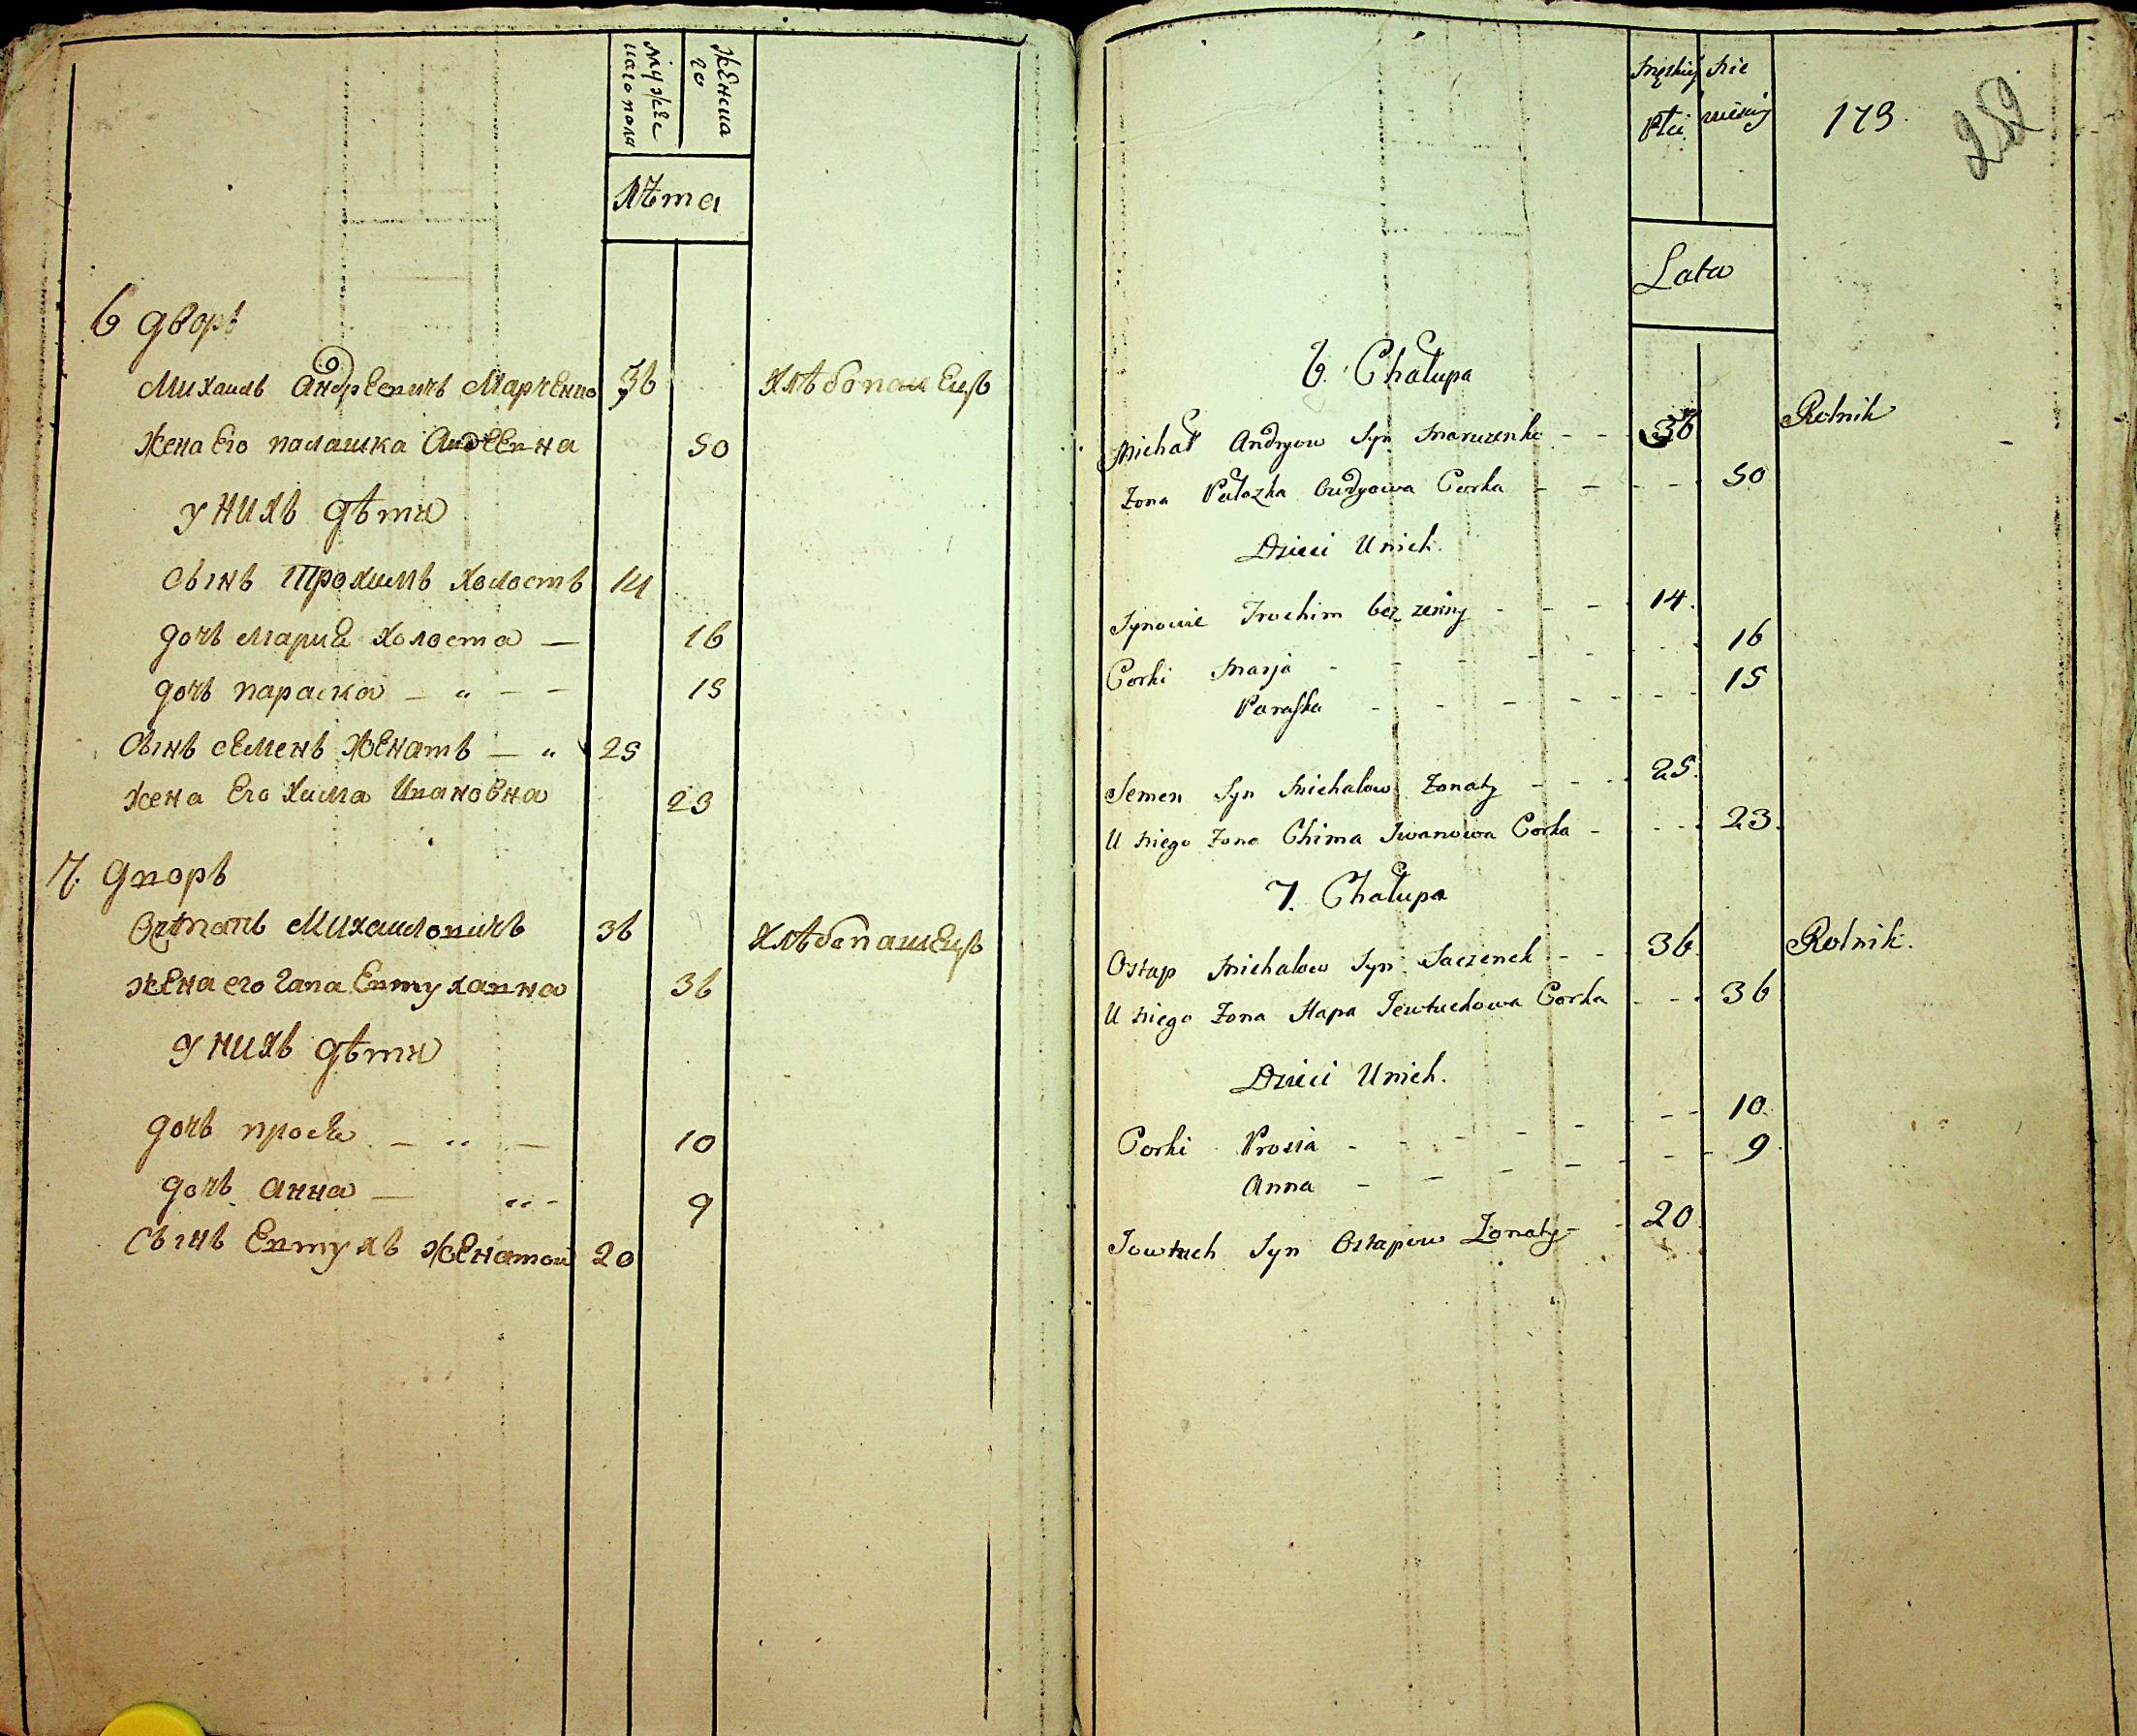 мужес
каго пола
женска
го
лѣта
6 дворъ
Михаилъ Андреевичъ Марченко 36 хлѣбопашецъ
жена Его палашка Андеевна 50
у нихъ дѣти
сынъ Трохимъ холостъ 14
дочь мария холоста — 16
дочь параска — „ — — 15
сынъ семенъ женатъ — „ 25
жена Его хима Ивановна 23
7. дворъ
Остапъ Михаиловичъ 36 хлѣбопашецъ
жена его гапа Евтуховна 36
у нихъ дѣти
дочь прося — „ — 10
дочь анна — „ - 9
сынъ Евтухъ женатой 20
Męskiej Płci
Nie wieściej
173
252
Lata
6. Chałupa
Michał Andryow Syn Marczenko - - 36 Rolnik
Żona Pałazka Corka - - - - 50
Dzieci U nich.
Synowie Trochim bez żenny - - - 14.
Corki Marja - - - - - - - 16
Paraska - - - - - - - 15
Semen Syn Michałow Żonaty - - - 25.
U Niego Żona Chima Iwanowa Corka - - - - 23.
7. Chałupa
Ostap Michałow Syn Saczenck - - 36. Rolnik.
U Niego Żona Hapa Jewtuchowa Corka - - - 36
Dzieci U nich.
Corki Prosia - - - - - - - 10.
Anna - - - - - - - 9.
Jowtuch Syn Ostapow Żonaty - - 20.